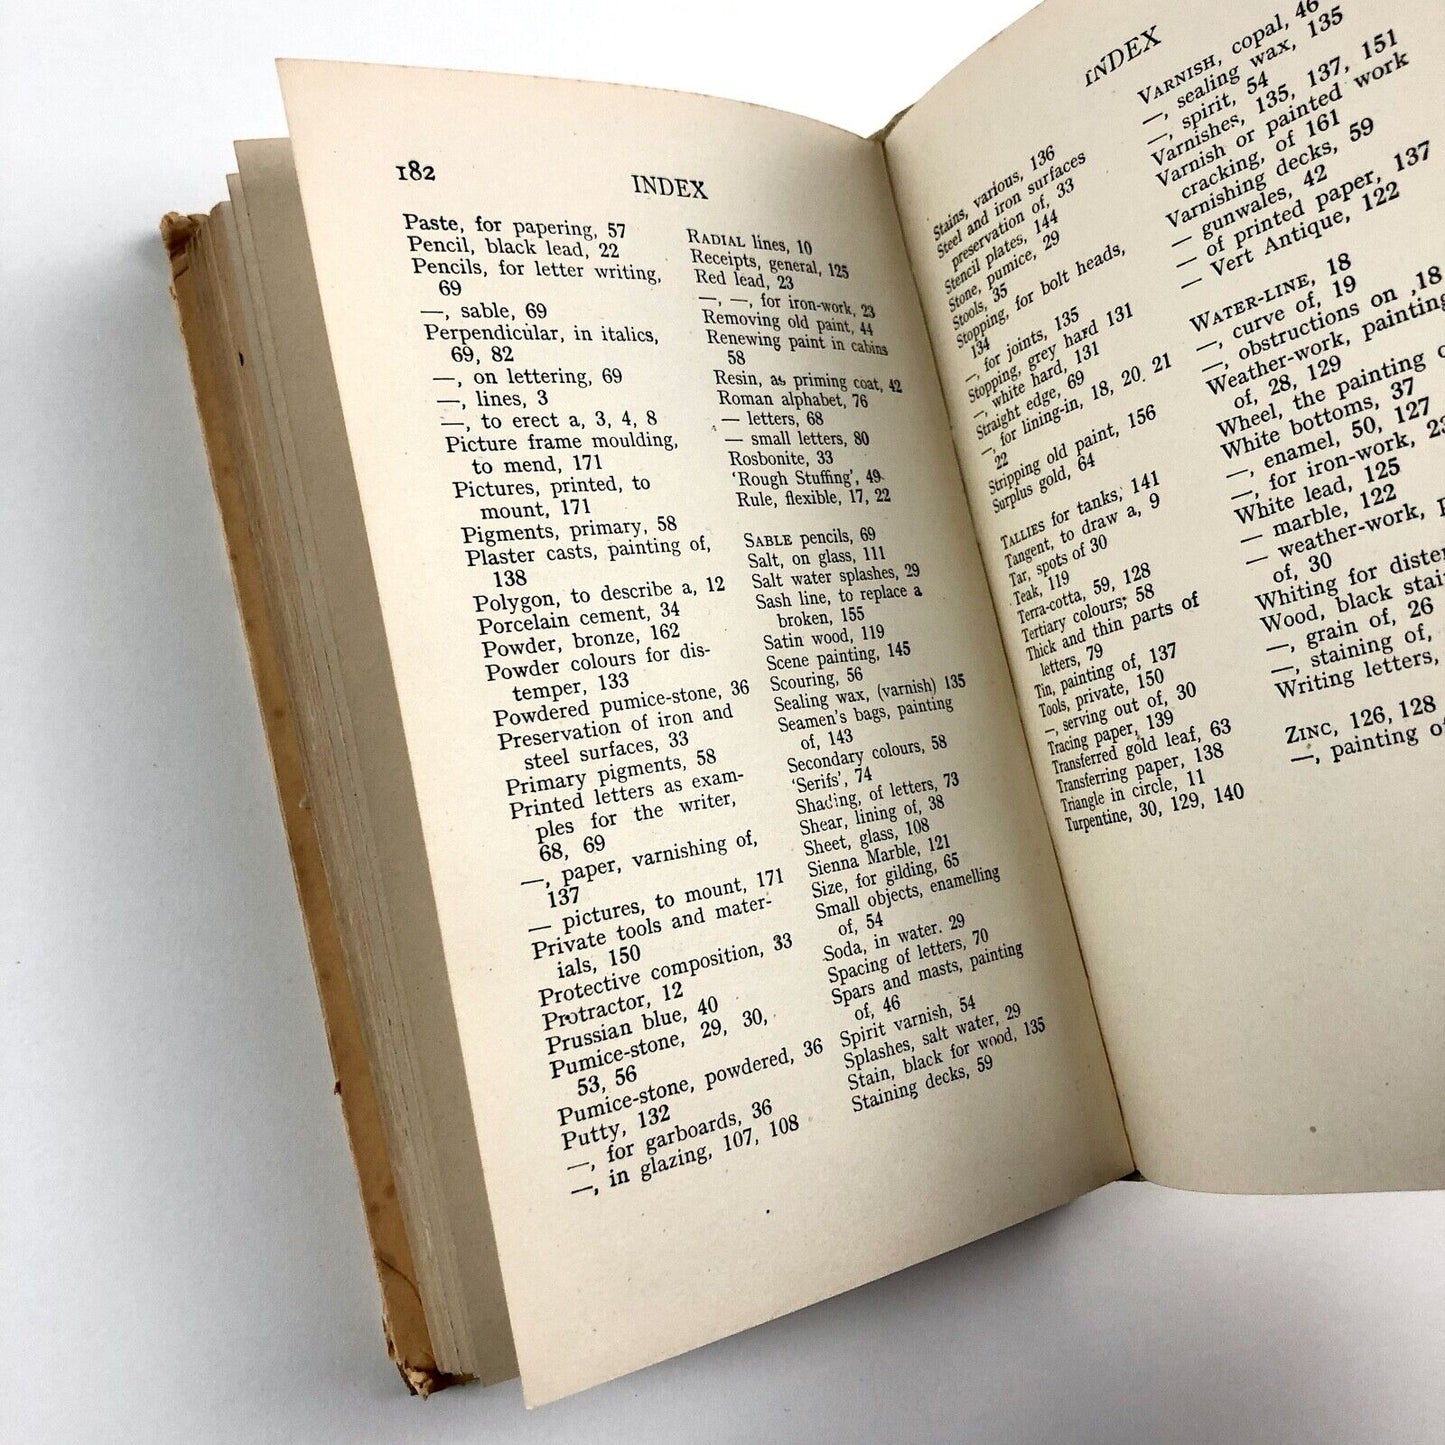 182
INDEX
Paste, for papering, 57
Pencil, black lead, 22
Pencils, for letter writing,
69
—, sable, 69
Perpendicular, in italics,
69, 82
—, on lettering, 69
—, lines, 3
—, to erect a, 3, 4, 8
Picture frame moulding,
to mend, 171
Pictures, printed, to
mount, 171
Pigments, primary, 58
Plaster casts, painting of,
138
Polygon, to describe a, 12
Porcelain cement, 34
Powder, bronze, 162
Powder colours for dis-
temper, 133
Powdered pumice-stone, 36
Preservation of iron and
steel surfaces, 33
Primary pigments, 58
Printed letters as exam-
ples for the writer,
68, 69
—, paper, varnishing of,
137
— pictures, to mount, 171
Private tools and mater-
ials, 150
Protective composition, 33
Protractor, 12
Prussian blue, 40
Pumice-stone, 29, 30,
53, 56
Pumice-stone, powdered, 36
Putty, 132
—, for garboards, 36
—, in glazing, 107, 108
RADIAL lines, 10
Receipts, general, 125
Red lead, 23
—, —, for iron-work, 23
Removing old paint, 44
Renewing paint in cabins
58
Resin, as priming coat, 42
Roman alphabet, 76
— letters, 68
— small letters, 80
Rosbonite, 33
'Rough Stuffing', 49
Rule, flexible, 17, 22
SABLE pencils, 69
Salt, on glass, 111
Salt water splashes, 29
Sash line, to replace a
broken, 155
Satin wood, 119
Scene painting, 145
Scouring, 56
Sealing wax, (varnish) 135
Seamen's bags, painting
of, 143
Secondary colours, 58
'Serifs', 74
Shading, of letters, 73
Shear, lining of, 38
Sheet, glass, 108
Sienna Marble, 121
Size, for gilding, 65
Small objects, enamelling
of, 54
Soda, in water. 29
Spacing of letters, 70
Spars and masts, painting
of, 46
Spirit varnish, 54
Splashes, salt water, 29
Stain, black for wood, 135
Staining decks, 59
INDEX
Stains, various, 136
Steel and iron surfaces
preservation of, 33
Stencil plates, 144
Stone, pumice, 29
Stools, 35
Stopping, for bolt heads,
134
—, for joints, 135
Stopping, grey hard 131
—, white hard, 131
Straight edge, 69
—, for lining-in, 18, 20, 21
22
Stripping old paint, 156
Surplus gold, 64
TALLIES for tanks, 141
Tangent, to draw a, 9
Tar, spots of 30
Teak, 119
Terra-cotta, 59, 128
Tertiary colours; 58
Thick and thin parts of
letters, 79
Tin, painting of, 137
Tools, private, 150
—, serving out of, 30
Tracing paper, 139
Transferred gold leaf, 63
Transferring paper, 138
Triangle in circle, 11
Turpentine, 30, 129, 140
VARNISH, copal, 46
—, sealing wax, 135
—, spirit, 54
Varnishes, 135, 137, 151
Varnish or painted work
cracking, of 161
Varnishing decks, 59
— gunwales, 42
— of printed paper, 137
— Vert Antique, 122
WATER-LINE, 18
—, curve of, 19
—, obstructions on ,18
Weather-work, painting
of, 28, 129
Wheel, the painting
White bottoms, 37
—, enamel, 50, 127
—, for iron-work, 23
White lead, 125
— marble, 122
— weather-work,
of, 30
Whiting for
Wood, black
—, grain of, 26
—, staining of,
Writing letters,
ZINC, 126, 128
—, painting